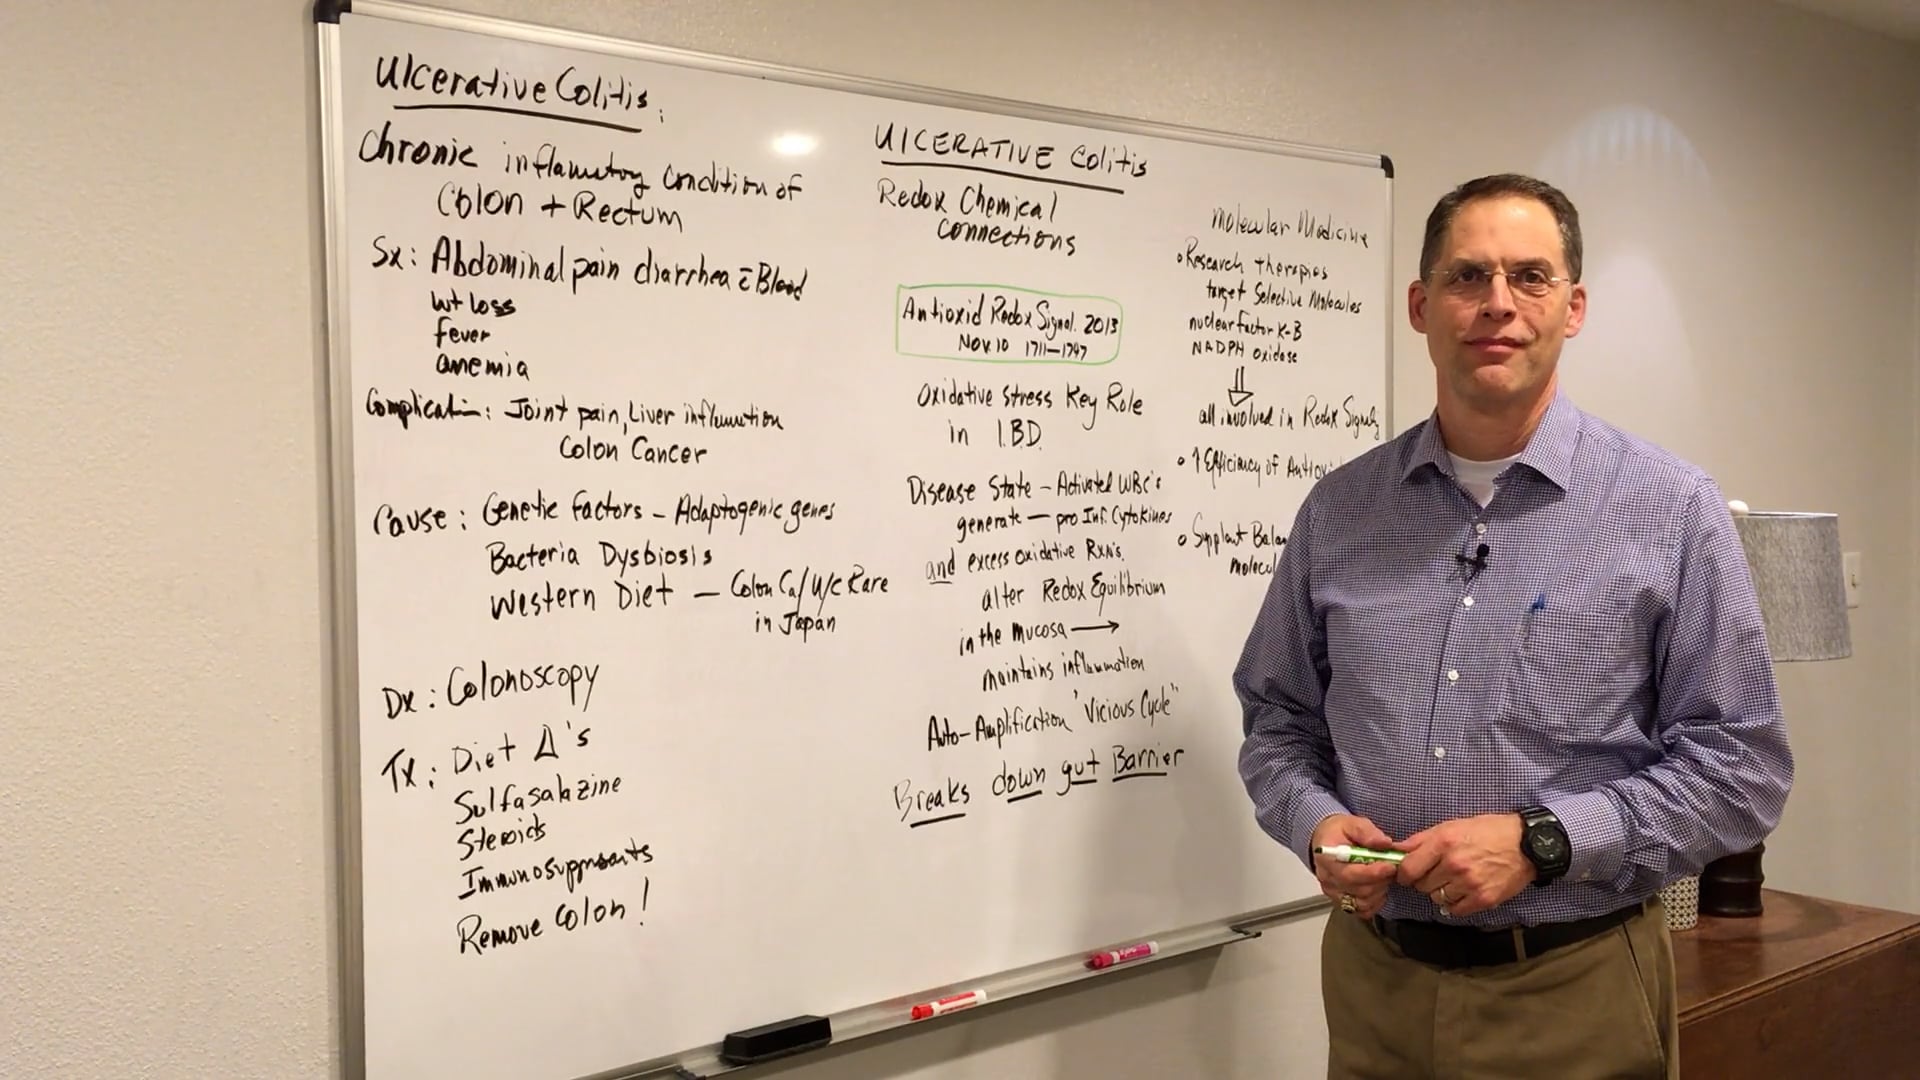 Ulcerative Colitis:
Chronic inflamatory condition of
Colon + Rectum
Sx: Abdominal pain diarrhea c̄ Blood
wt loss
fever
anemia
Complication: Joint pain, Liver inflamation
Colon Cancer
Cause: Genetic factors - Adaptogenic genes
Bacteria Dysbiosis
Western Diet - Colon Ca/U/C Rare
in Japan
Dx: Colonoscopy
Tx: Diet Δ's
Sulfasalazine
Steroids
Immunosuppresants
Remove Colon!
ULCERATIVE Colitis
Redox Chemical
Connections
Antioxid Redox Signal. 2013
Nov. 10 1711-1747
Oxidative Stress Key Role
in I.B.D.
Disease State - Activated WBC's
generate - pro Inf. Cytokines
and excess oxidative RXN's.
alter Redox Equilibrium
in the mucosa →
maintains inflammation
Auto-Amplification "Vicious Cycle"
Breaks down gut Barrier
Molecular Medicine
• Research therapies
target Selective Molecules
nuclear factor K-B
NADPH oxidase
⇓
all involved in Redox Signaling
• ↑ Efficiency of
•